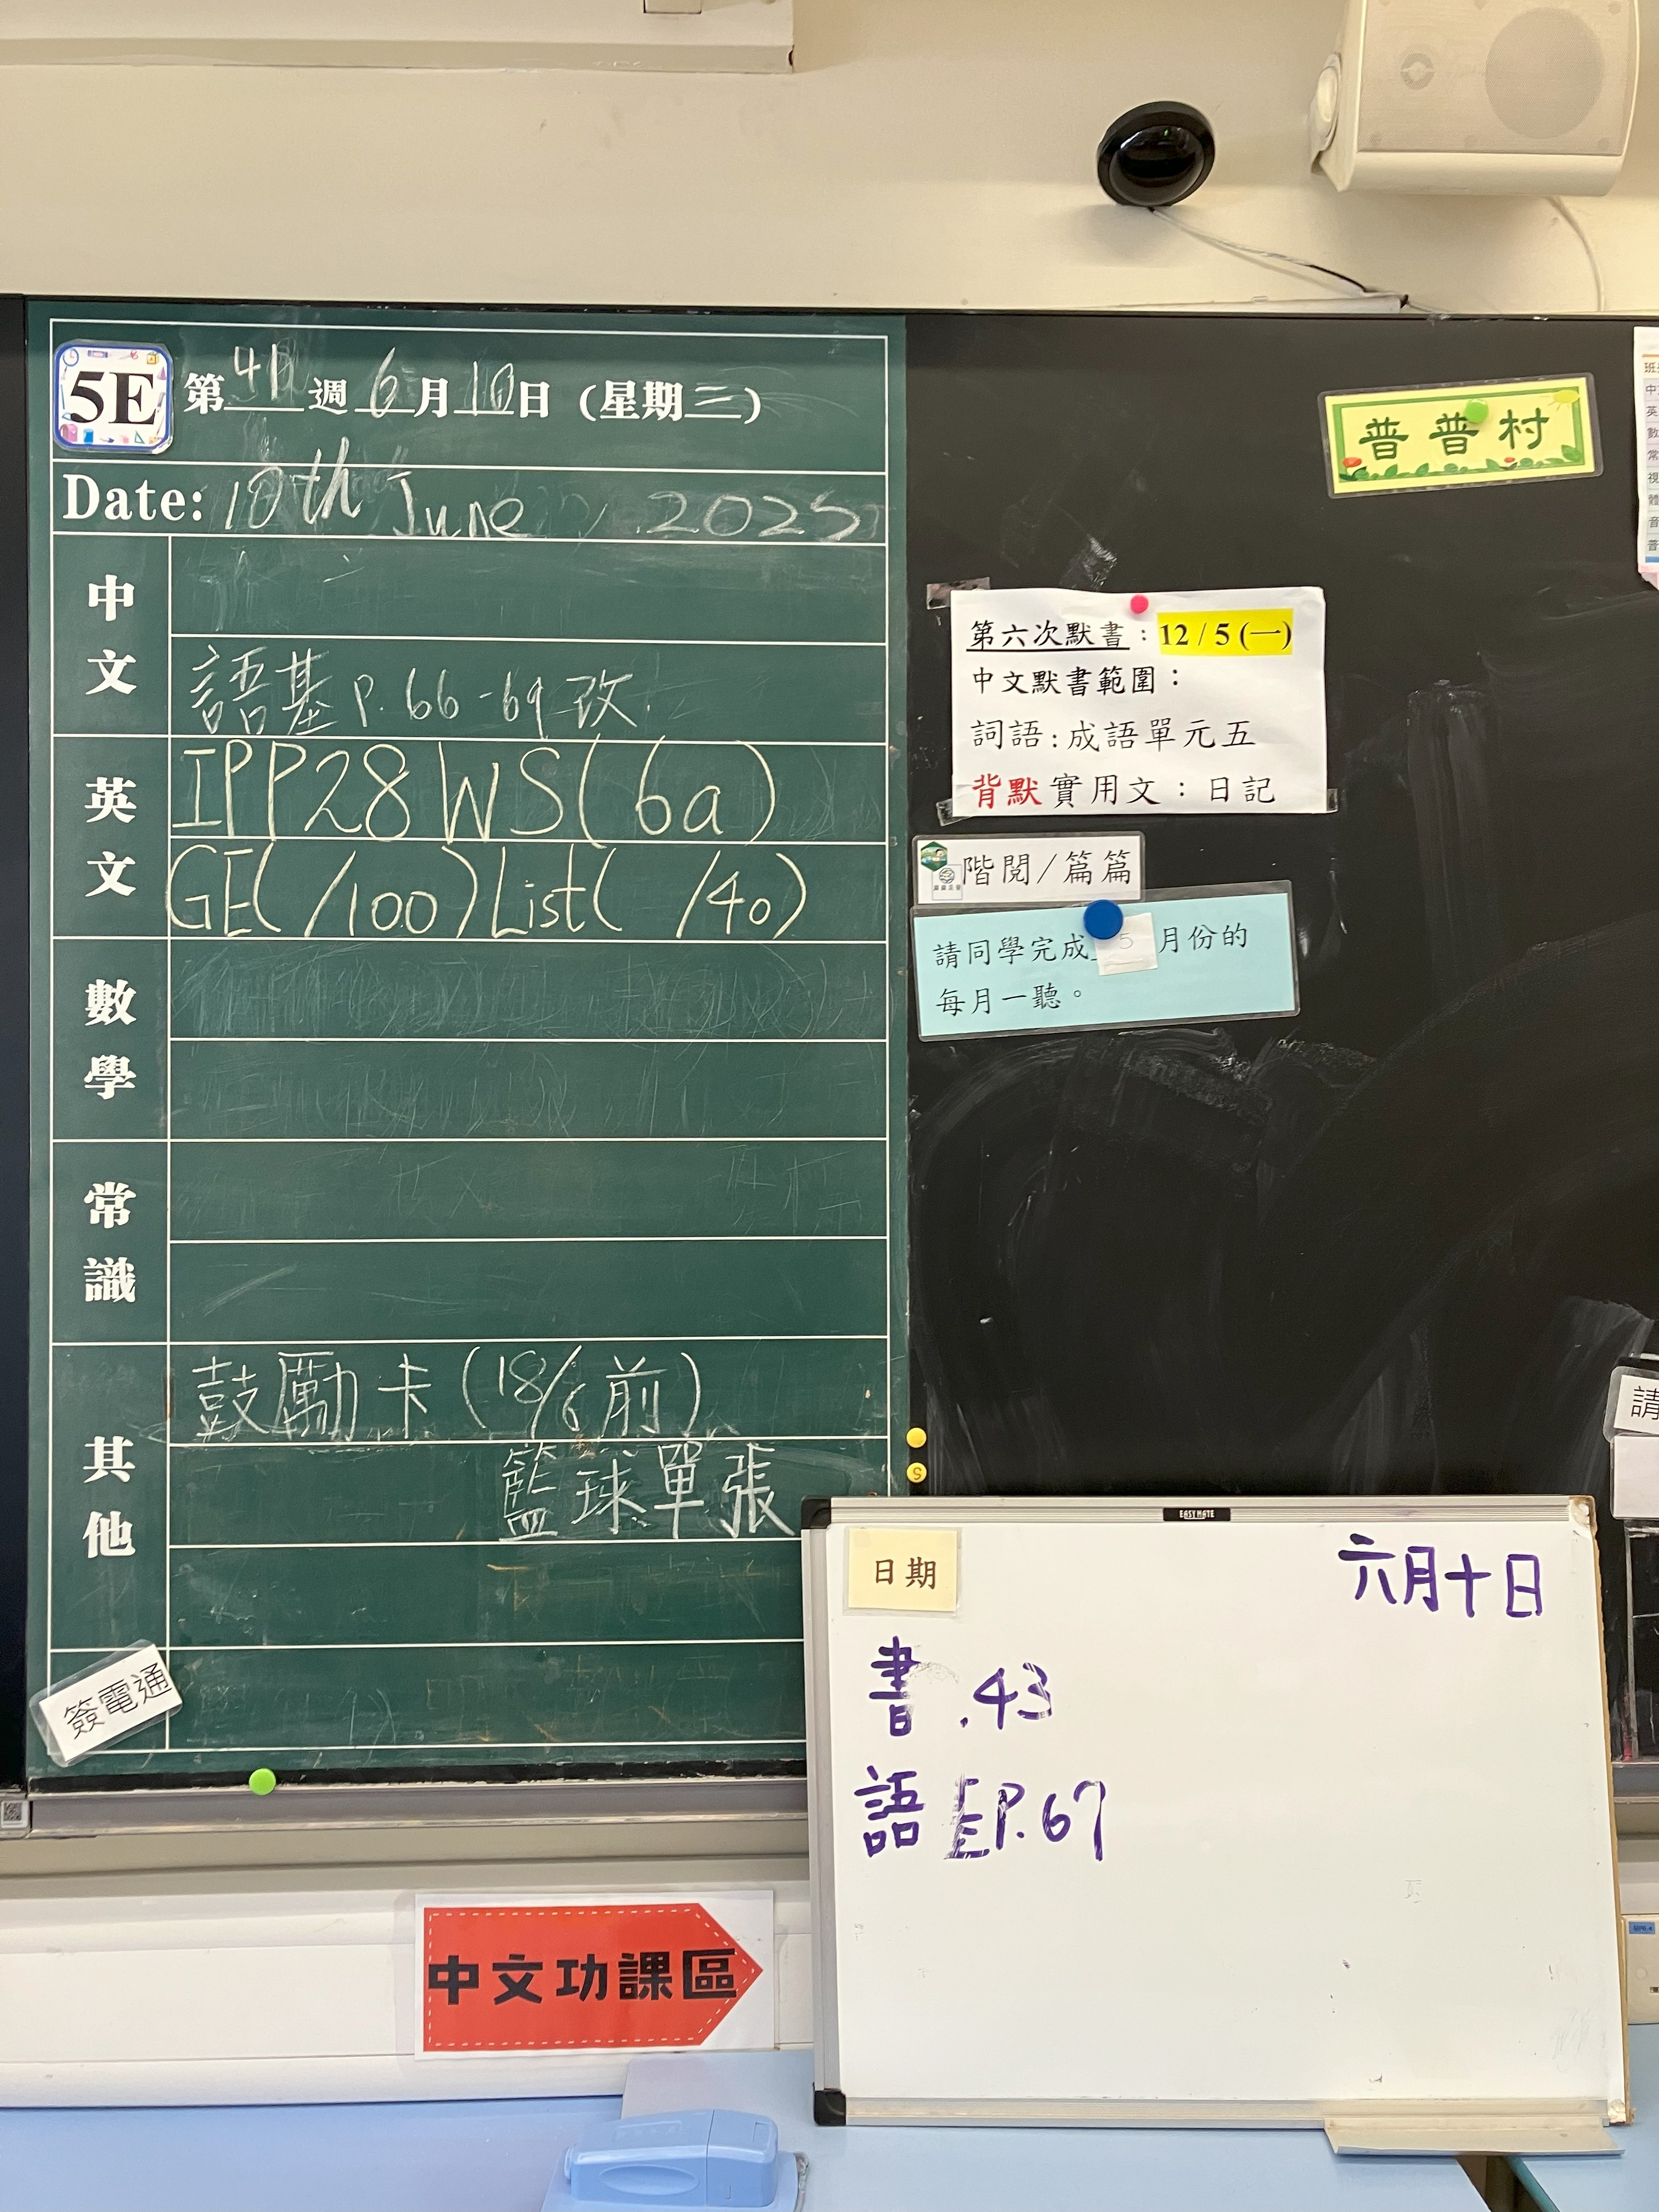 5E 第 41 週 6 月 10 日 (星期三)
Date: 10th June 2025
中文
語基 P. 66-69 改
英文
IPP28 WS(6a)
GE( /100) List( /40)
數學
常識
其他
鼓勵卡(18/6前)
籃球單張
簽電通
普普村
第六次默書：12/5(一)
中文默書範圍：
詞語:成語單元五
背默實用文：日記
階閱/篇篇
請同學完成 5 月份的
每月一聽。
EASYMATE
日期 六月十日
書.43
語 P.67
中文功課區
請
5